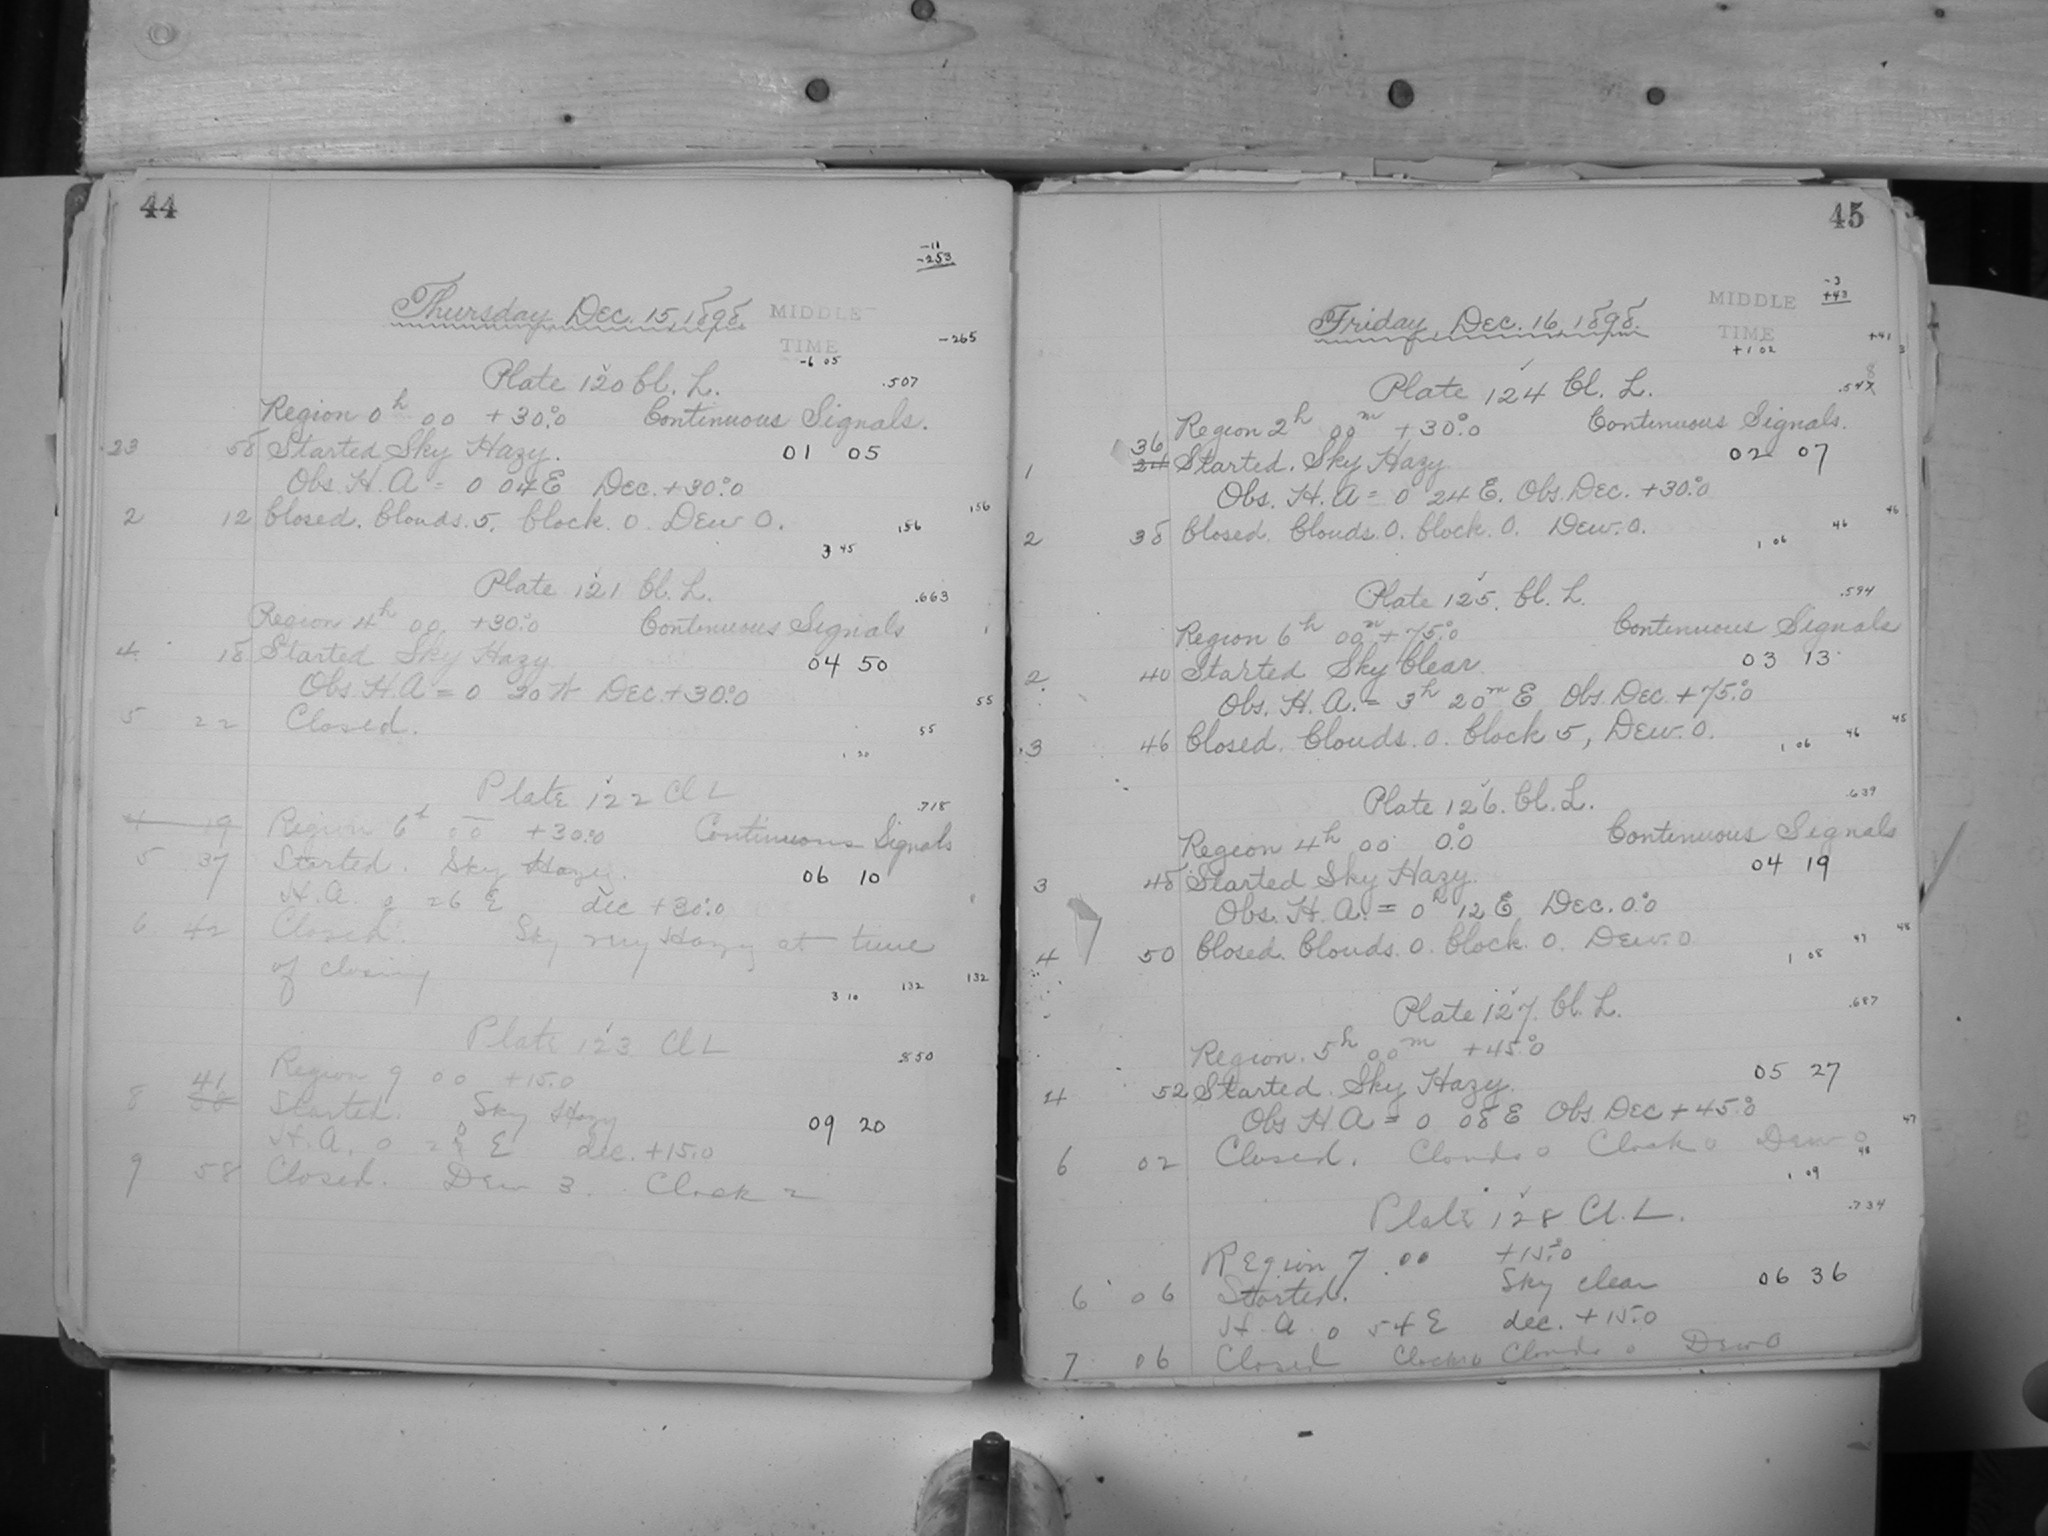 44
-11
-253
Thursday Dec. 15, 1898. MIDDLE TIME
-265
-6 05
Plate 120 Cl. L. .507
Region 0h 00 +30°.0 Continuous Signals.
23 58 Started Sky Hazy. 01 05
Obs. H. A = 0 04 E Dec. +30°.0
2 12 Closed. Clouds. 5. Clock. 0. Dew 0. 156 156
3 45
Plate 121 Cl. L. .663
Region 4h 00 +30°.0 Continuous Signals
4 18 Started Sky Hazy 04 50
Obs H. A = 0 20 W Dec. +30°.0
5 22 Closed. 55 55
1 20
Plate 122 Cl L .718
4 19 Region 6h 00 +30°.0 Continuous Signals
5 37 Started. Sky Hazy. 06 10
H. A. 0 26 E dec +30°.0
6 42 Closed. Sky very Hazy at time
of closing
3 10 132 132
Plate 123 Cl L .850
Region 9 00 +15.0
8 41 Started. Sky Hazy 09 20
H. A. 0 E dec. +15.0
9 58 Closed. Dew 3. Clock 2
45
-3
+43
Friday, Dec. 16, 1898. MIDDLE TIME
+1 02 +41
Plate 124 Cl. L. .547 8
Region 2h 00m +30°.0 Continuous Signals.
1 36 24 Started. Sky Hazy 02 07
Obs. H. A = 0 24 E. Obs. Dec. +30°.0
2 38 Closed. Clouds. 0. Clock. 0. Dew. 0. 46 46
1 06
Plate 125. Cl. L. .594
Region 6h 00m +75°.0 Continuous Signals
2 40 Started Sky Clear 03 13
Obs. H. A. = 3h 20m E Obs. Dec +75°.0
3 46 Closed. Clouds. 0. Clock 5, Dew. 0. 46 45
1 06
Plate 126. Cl. L. .639
Region 4h 00 0°.0 Continuous Signals
3 48 Started Sky Hazy. 04 19
Obs. H. A. = 0h 12 E Dec. 0°.0
4 50 Closed. Clouds. 0. Clock. 0. Dew. 0 47 48
1 08
Plate 127. Cl. L. .687
Region. 5h 00m +45°.0
4 52 Started. Sky Hazy. 05 27
Obs H. A = 0 08 E Obs Dec +45°.0
6 02 Closed. Clouds 0 Clock 0 Dew 0 48 47
1 09
Plate 128 Cl. L. .734
Region 7 00 +15°.0
6 06 Started. Sky clear 06 36
H. A. 0 54 E dec. +15.0
7 06 Closed Clock 0 Clouds 0 Dew 0